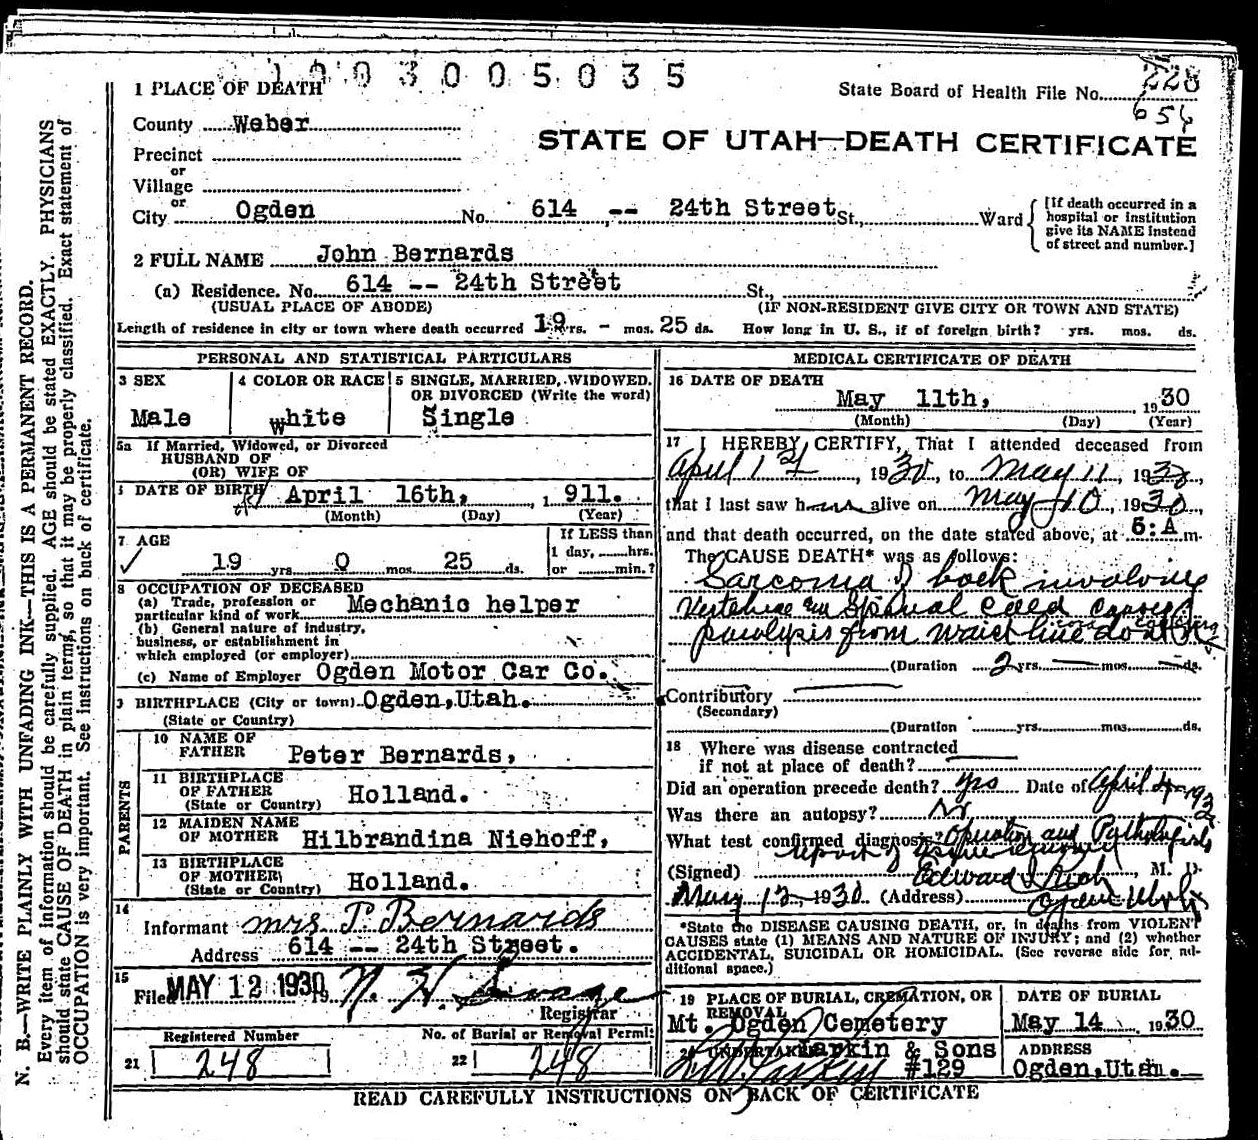 1003005035
228
1 PLACE OF DEATH
State Board of Health File No.
656
County Weber
STATE OF UTAH—DEATH CERTIFICATE
Precinct
or
Village
or
City Ogden No. 614 -- 24th Street St., Ward
[If death occurred in a
hospital or institution
give its NAME instead
of street and number.]
2 FULL NAME John Bernards
(a) Residence. No. 614 -- 24th Street St.,
(USUAL PLACE OF ABODE) (IF NON-RESIDENT GIVE CITY OR TOWN AND STATE)
Length of residence in city or town where death occurred 19 yrs. - mos. 25 ds. How long in U. S., if of foreign birth? yrs. mos. ds.
PERSONAL AND STATISTICAL PARTICULARS
3 SEX
Male
4 COLOR OR RACE
White
5 SINGLE, MARRIED, WIDOWED,
OR DIVORCED (Write the word)
Single
5a If Married, Widowed, or Divorced
HUSBAND OF
(OR) WIFE OF
DATE OF BIRTH April 16th, 1911.
(Month) (Day) (Year)
7 AGE
19 yrs. 0 mos. 25 ds.
If LESS than
1 day, hrs.
or min.?
8 OCCUPATION OF DECEASED
(a) Trade, profession or
particular kind of work Mechanic helper
(b) General nature of industry,
business, or establishment in
which employed (or employer)
(c) Name of Employer Ogden Motor Car Co.
9 BIRTHPLACE (City or town) Ogden, Utah.
(State or Country)
PARENTS
10 NAME OF
FATHER Peter Bernards,
11 BIRTHPLACE
OF FATHER
(State or Country) Holland.
12 MAIDEN NAME
OF MOTHER Hilbrandina Niehoff,
13 BIRTHPLACE
OF MOTHER
(State or Country) Holland.
14
Informant Mrs P. Bernards
Address 614 -- 24th Street.
15
Filed MAY 12 1930 19 N. H. Savage
Registrar
Registered Number
21 248
No. of Burial or Removal Permit
22 248
MEDICAL CERTIFICATE OF DEATH
16 DATE OF DEATH
May 11th, 1930
(Month) (Day) (Year)
17 I HEREBY CERTIFY, That I attended deceased from
April 1st, 1930, to May 11, 1930,
that I last saw him alive on May 10, 1930,
and that death occurred, on the date stated above, at 5:A m.
The CAUSE DEATH* was as follows:
Sarcoma of back involving
Vertebrae and Spinal Cord Causing
paralysis from waist line down
(Duration 2 yrs. mos. ds.
Contributory
(Secondary)
(Duration yrs. mos. ds.
18 Where was disease contracted
if not at place of death?
Did an operation precede death? yes Date of April 4
Was there an autopsy? No
What test confirmed diagnosis? Operation and Pathologists
report of tissue removed
(Signed) Edward I Rich, M. D.
May 12, 1930 (Address) Ogden Utah
*State the DISEASE CAUSING DEATH, or, in deaths from VIOLENT
CAUSES state (1) MEANS AND NATURE OF INJURY; and (2) whether
ACCIDENTAL, SUICIDAL OR HOMICIDAL. (See reverse side for ad-
ditional space.)
19 PLACE OF BURIAL, CREMATION, OR
REMOVAL
Mt. Ogden Cemetery
DATE OF BURIAL
May 14 1930
20 UNDERTAKER Larkin & Sons
#129
ADDRESS
Ogden, Utah.
READ CAREFULLY INSTRUCTIONS ON BACK OF CERTIFICATE
N. B.—WRITE PLAINLY WITH UNFADING INK—THIS IS A PERMANENT RECORD.
Every item of information should be carefully supplied. AGE should be stated EXACTLY. PHYSICIANS
should state CAUSE OF DEATH in plain terms, so that it may be properly classified. Exact statement of
OCCUPATION is very important. See instructions on back of certificate.